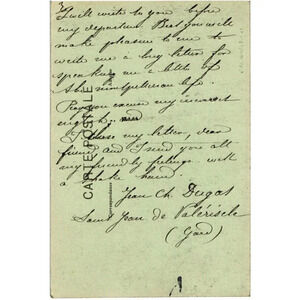 I will write to you before
my departure. But you will
make pleasure to me to
write me a long letter for
speaking me a little of
the
Pray you excuse my incorrect
english.
I close my letter, dear
friend and I send you all
my friendly feelings with
a shake hand
Jean Ch. Dugas
Saint Jean de Valériscle
(Gard)
CARTE POSTALE